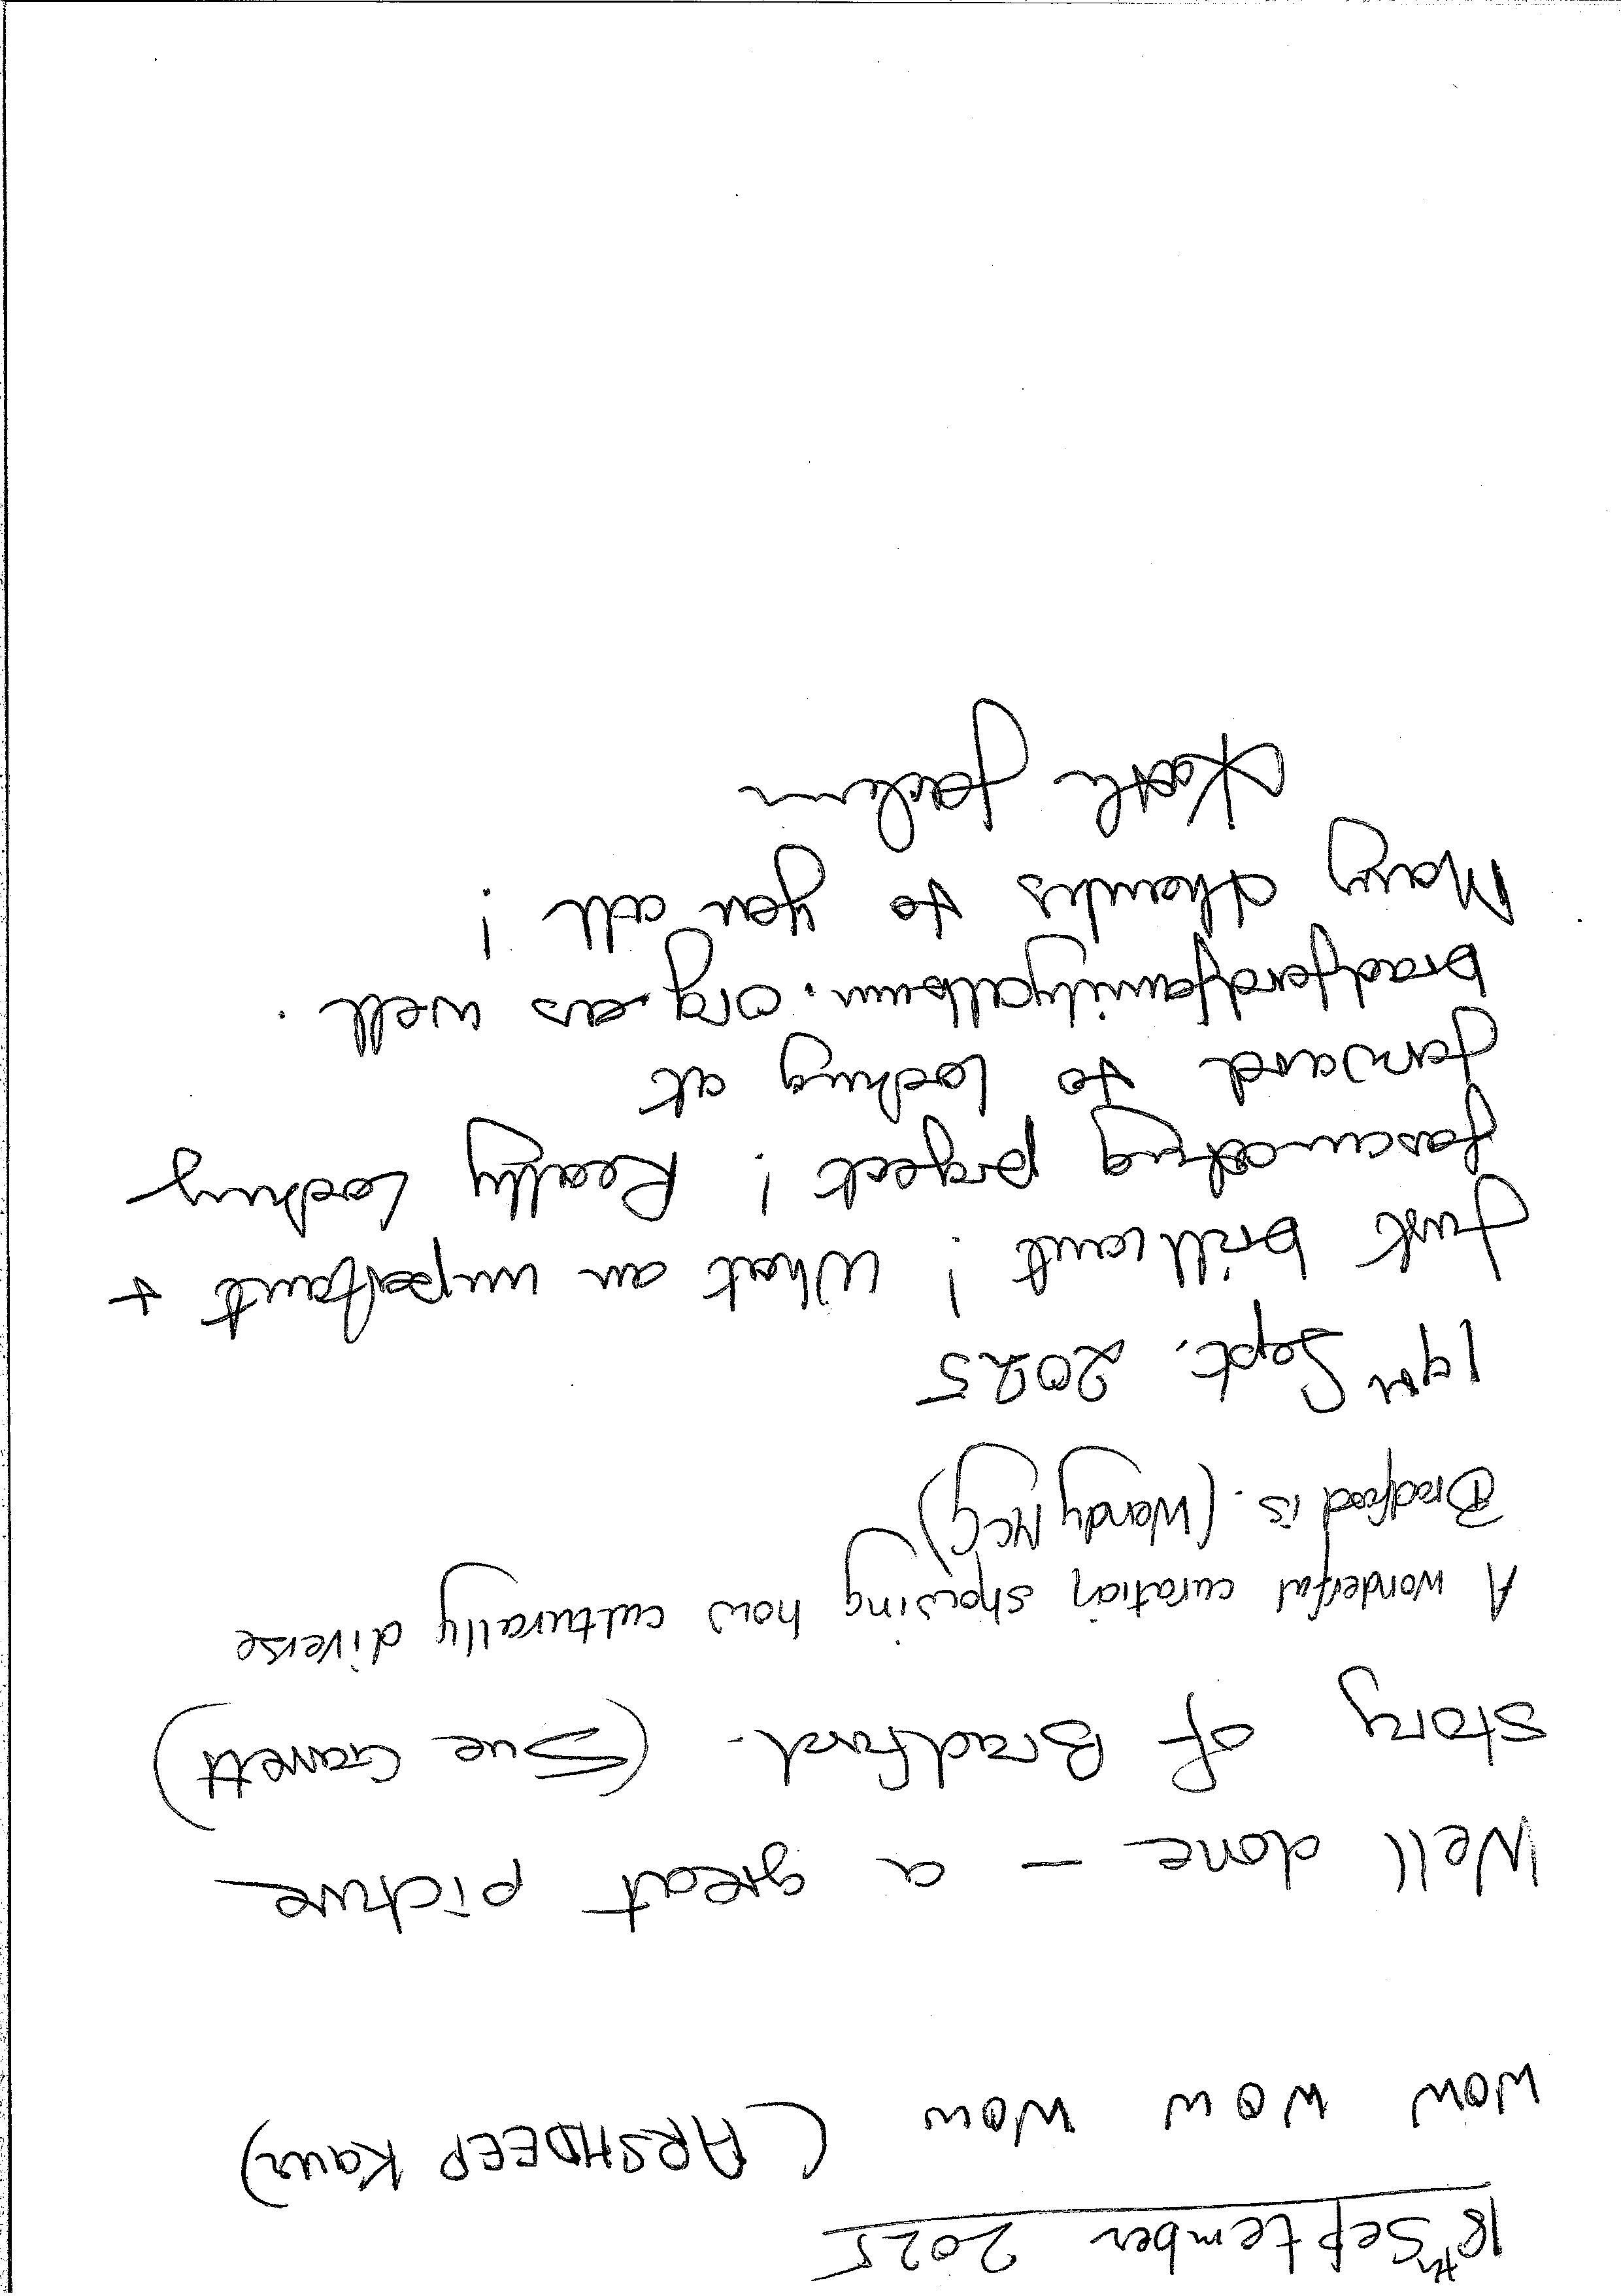 18th September 2025
wow wow wow (ARSHDEEP Kaur)
Well done – a great picture
story of Bradford. (Sue Garrett)
A wonderful curation showing how culturally diverse
Bradford is. (Wendy McG)
19th Sept. 2025
Just brilliant! What an important +
fascinating project! Really looking
forward to looking at
bradfordfamilyalbum.org as well.
Many thanks to you all!